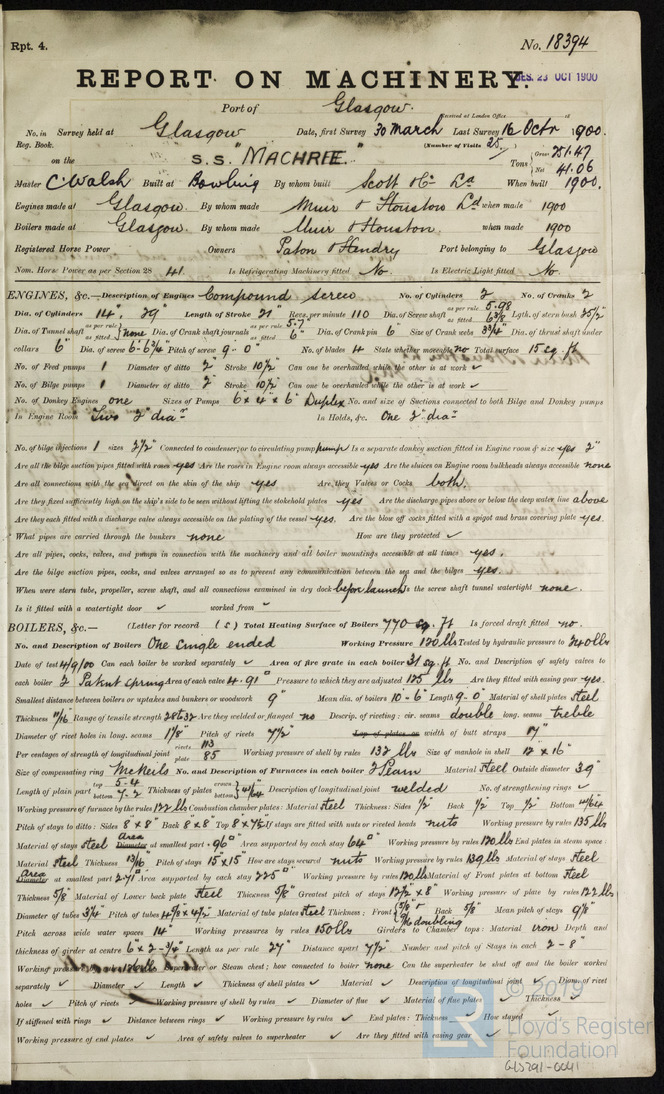 Rpt. 4.
No. 18394
REPORT ON MACHINERY.
WES. 23 OCT 1900
Port of Glasgow.
Received at London Office
No. in Survey held at Glasgow Date, first Survey 30 March Last Survey 16 Octr 1900.
Reg. Book. (Number of Visits 25)
on the S.S. "MACHRIE." Tons { Gross 251.47 Net 41.06
Master C. Walsh Built at Bowling By whom built Scott & Co Ld When built 1900.
Engines made at Glasgow By whom made Muir & Houston Ld when made 1900
Boilers made at Glasgow. By whom made Muir & Houston. when made 1900
Registered Horse Power Owners Paton & Hendry Port belonging to Glasgow
Nom. Horse Power as per Section 28 41. Is Refrigerating Machinery fitted No. Is Electric Light fitted No.
ENGINES, &c.—Description of Engines Compound Screw No. of Cylinders 2 No. of Cranks 2
Dia. of Cylinders 14", 29" Length of Stroke 21" Revs. per minute 110 Dia. of Screw shaft as per rule 5.98 as fitted 6 3/8 Lgth. of stern bush 25 1/2"
Dia. of Tunnel shaft as per rule as fitted none Dia. of Crank shaft journals as per rule 5.7" as fitted 6" Dia. of Crank pin 6" Size of Crank webs 3 3/4" Dia. of thrust shaft under
collars 6" Dia. of screw 6'-6 3/4" Pitch of screw 9'-0" No. of blades 4 State whether moveable no Total surface 15 sq. ft
No. of Feed pumps 1 Diameter of ditto 2" Stroke 10 1/2" Can one be overhauled while the other is at work ✓
No. of Bilge pumps 1 Diameter of ditto 2" Stroke 10 1/2" Can one be overhauled while the other is at work ✓
No. of Donkey Engines one Sizes of Pumps 6" x 4" x 6" Duplex No. and size of Suctions connected to both Bilge and Donkey pumps
In Engine Room Two 2" diar In Holds, &c. One 2" diar
No. of bilge injections 1 sizes 2 1/2" Connected to condenser, or to circulating pump pump Is a separate donkey suction fitted in Engine room & size yes 2"
Are all the bilge suction pipes fitted with roses yes Are the roses in Engine room always accessible yes Are the sluices on Engine room bulkheads always accessible none
Are all connections with the sea direct on the skin of the ship yes Are they Valves or Cocks both.
Are they fixed sufficiently high on the ship's side to be seen without lifting the stokehold plates yes Are the discharge pipes above or below the deep water line above
Are they each fitted with a discharge valve always accessible on the plating of the vessel yes. Are the blow off cocks fitted with a spigot and brass covering plate yes.
What pipes are carried through the bunkers none How are they protected ✓
Are all pipes, cocks, valves, and pumps in connection with the machinery and all boiler mountings accessible at all times yes.
Are the bilge suction pipes, cocks, and valves arranged so as to prevent any communication between the sea and the bilges yes.
When were stern tube, propeller, screw shaft, and all connections examined in dry dock before launch Is the screw shaft tunnel watertight none.
Is it fitted with a watertight door ✓ worked from ✓
BOILERS, &c.— (Letter for record (S) Total Heating Surface of Boilers 770 sq. ft Is forced draft fitted no.
No. and Description of Boilers One single ended Working Pressure 120 lbs Tested by hydraulic pressure to 240 lbs
Date of test 4/9/00 Can each boiler be worked separately ✓ Area of fire grate in each boiler 31 sq. ft No. and Description of safety valves to
each boiler 2 Patent spring Area of each valve 4.91 □" Pressure to which they are adjusted 125 lbs Are they fitted with easing gear yes.
Smallest distance between boilers or uptakes and bunkers or woodwork 9" Mean dia. of boilers 10'-6" Length 9'-0" Material of shell plates Steel
Thickness 11/16 Range of tensile strength 28 to 32 Are they welded or flanged no Descrip. of riveting: cir. seams double long. seams treble
Diameter of rivet holes in long. seams 1 1/8" Pitch of rivets 7 1/2" Lap of plates or width of butt straps 17"
Per centages of strength of longitudinal joint rivets 113 plate 85 Working pressure of shell by rules 132 lbs Size of manhole in shell 12" x 16"
Size of compensating ring McNeils No. and Description of Furnaces in each boiler 2 Plain Material Steel Outside diameter 39"
Length of plain part top 5-4 bottom 7-2 Thickness of plates crown bottom } 41/64" Description of longitudinal joint welded No. of strengthening rings ✓
Working pressure of furnace by the rules 122 lbs Combustion chamber plates: Material steel Thickness: Sides 1/2" Back 1/2" Top 1/2" Bottom 41/64
Pitch of stays to ditto: Sides 8" x 8" Back 8" x 8" Top 8" x 7 1/2 If stays are fitted with nuts or riveted heads nuts Working pressure by rules 135 lbs
Material of stays steel Area Diameter at smallest part .96 □" Area supported by each stay 64 □" Working pressure by rules 120 lbs End plates in steam space:
Material Steel Thickness 13/16 Pitch of stays 15" x 15" How are stays secured nuts Working pressure by rules 139 lbs Material of stays Steel
Area Diameter at smallest part 2.71 □" Area supported by each stay 225 □" Working pressure by rules 120 lbs Material of Front plates at bottom Steel
Thickness 5/8" Material of Lower back plate Steel Thickness 5/8" Greatest pitch of stays 12 1/2 x 8" Working pressure of plate by rules 122 lbs
Diameter of tubes 3 1/4" Pitch of tubes 4 5/8 x 4 1/2 Material of tube plates Steel Thickness: Front { 5/8" & 9/16 doubling Back 5/8" Mean pitch of stays 9 1/8"
Pitch across wide water spaces 14" Working pressures by rules 150 lbs Girders to Chamber tops: Material iron Depth and
thickness of girder at centre 6" x 2 - 3/4" Length as per rule 27" Distance apart 7 1/2" Number and pitch of Stays in each 2 - 8"
Working pressure by rules 136 lbs Superheater or Steam chest; how connected to boiler none Can the superheater be shut off and the boiler worked
separately ✓ Diameter ✓ Length ✓ Thickness of shell plates ✓ Material ✓ Description of longitudinal joint ✓ Diam. of rivet
holes ✓ Pitch of rivets ✓ Working pressure of shell by rules ✓ Diameter of flue ✓ Material of flue plates ✓ Thickness ✓
If stiffened with rings ✓ Distance between rings ✓ Working pressure by rules ✓ End plates: Thickness ✓ How stayed ✓
Working pressure of end plates ✓ Area of safety valves to superheater ✓ Are they fitted with easing gear ✓
© 2019
Lloyd's Register
Foundation
GLS291-0041